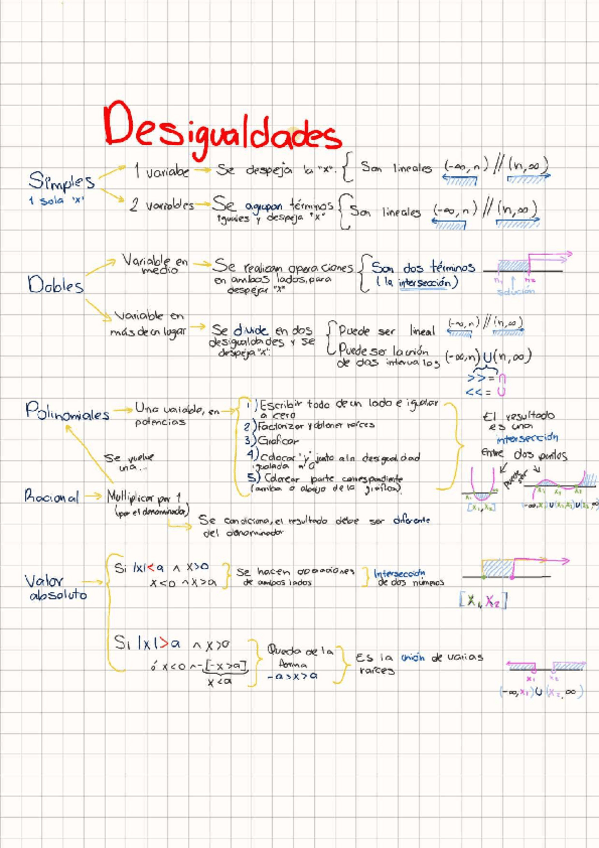 Desigualdades
Simples
1 sola "x"
1 variable → Se despeja la "x". { Son lineales (-∞, n) // (n, ∞)
2 variables → Se agrupan términos
iguales y despeja "x"
{ Son lineales (-∞, n) // (n, ∞)
Dobles
Variable en
medio
→ Se realizan operaciones
en ambos lados, para
despejar "x"
Son dos términos
(la intersección)
solución
Variable en
más de un lugar
→ Se divide en dos
desigualdades y se
despeja "x".
Puede ser lineal (-∞, n) // (n, ∞)
Puede ser la unión
de dos intervalos
(-∞, n) U (n, ∞)
>> = ∩
<< = U
Polinomiales → Una variable, en
potencias
1) Escribir todo de un lado e igualar
a cero
2) Factorizar y obtener raíces
3) Graficar
4) Colocar "y" junto a la desigualdad
igualada a 0
5) Colorear parte correspondiente
(arriba o abajo de la gráfica)
El resultado
es una
intersección
Entre dos puntos
Puede ser
[x₁, x₂]
Se vuelve
una...
Racional → Multiplicar por 1
(por el denominador)
→ Se condiciona, el resultado debe ser diferente
del denominador
Valor
absoluto
Si |x|<a ∧ x>0
x<0 ∧ -x>a
Se hacen operaciones
de ambos lados
Intersección
de dos números
[x₁, x₂]
Si |x|>a ∧ x>0
ó x<0 ∧ -[-x>a]
x<a
Queda de la
forma
-a>x>a
Es la unión de varias
raíces
x₁ x₂
(-∞, x₁) U (x₂, ∞)